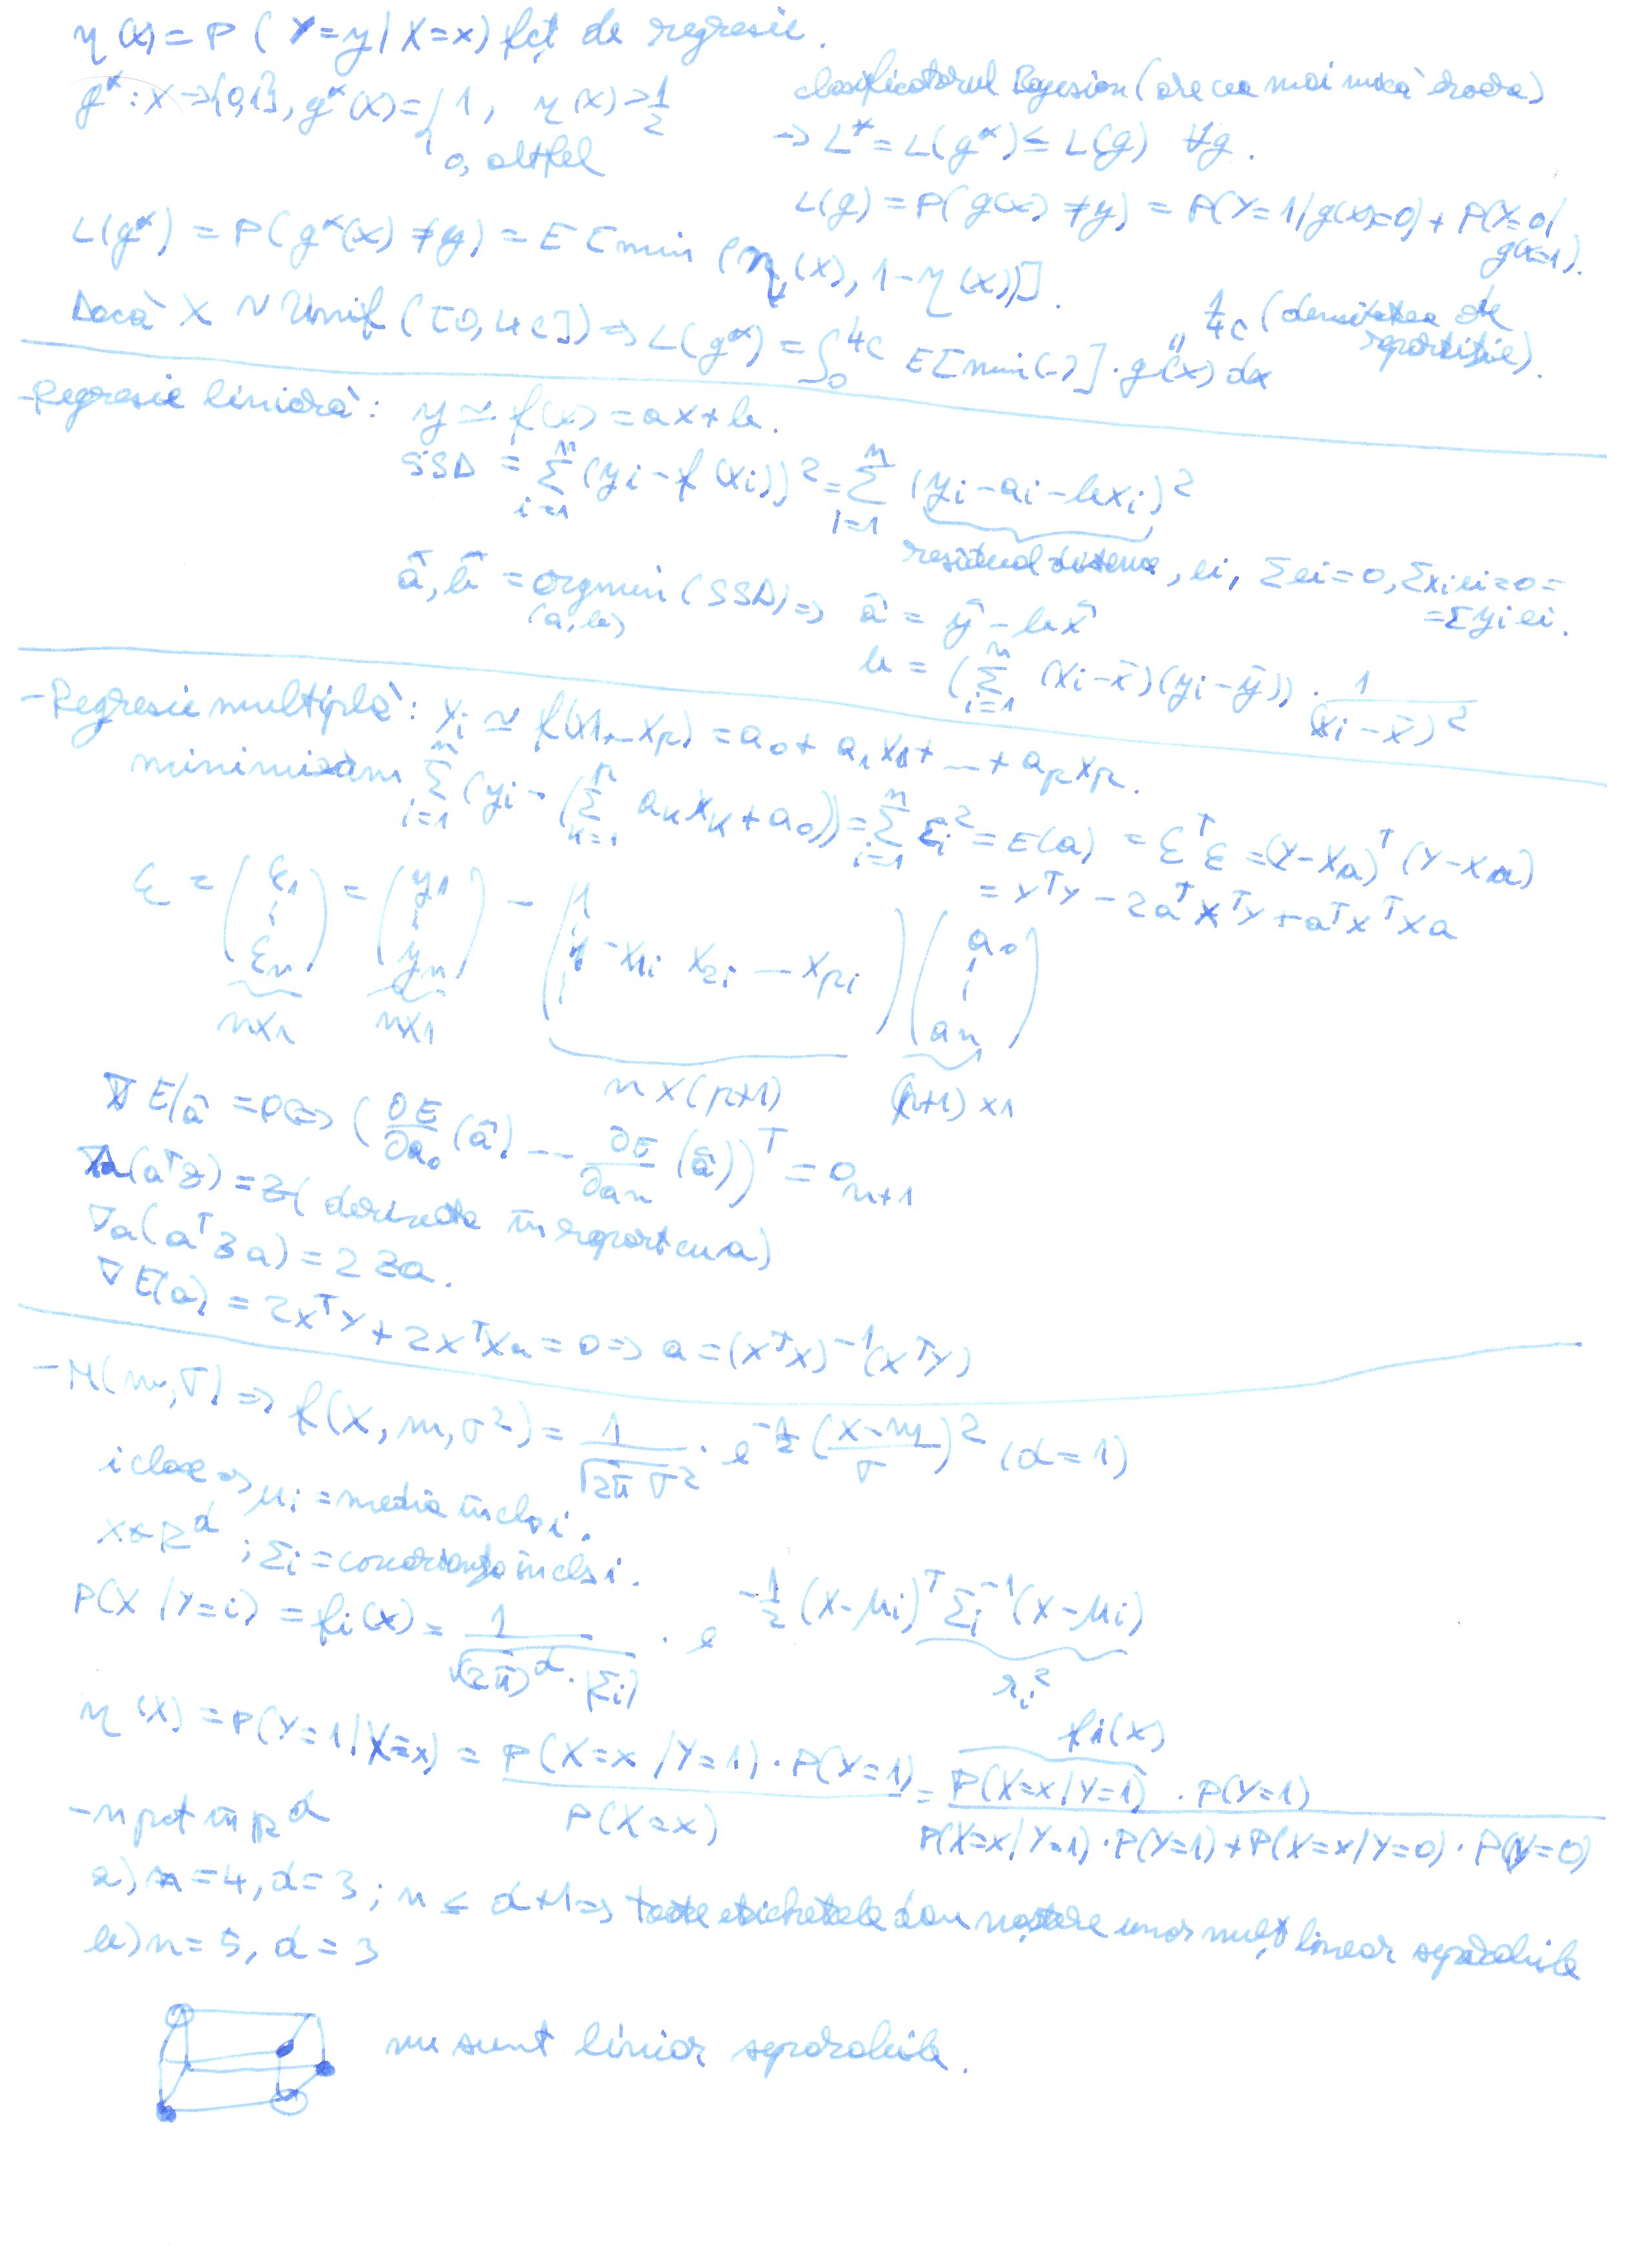 η(x) = P(Y=y|X=x) fct de regresie.
g*: X→{0,1}, g*(x) = { 1, η(x) > 1/2
0, altfel
clasificatorul Bayesian (are cea mai mică eroare)
→ L* = L(g*) ≤ L(g) ∀g.
L(g) = P(g(x) ≠ y) = P(Y=1/g(x)=0) + P(Y=0/
g(x)=1).
L(g*) = P(g*(x) ≠ y) = E[min (η(x), 1-η(x))].
Dacă X ~ Unif([0,4c]) ⇒ L(g*) = ∫₀^4c E[min(-)]·g(x) dx
" 1/4c (densitatea de
repartiție).
-Regresie liniară: y ≃ f(x) = ax+b.
SSD = Σ_{i=1}^n (yi - f(xi))² = Σ_{i=1}^n (yi - ai - bxi)²
ei, Σei=0, Σxiei=0=
=Σyiei.
â, b̂ = argmin (SSD) ⇒ â = ȳ - bx̄
(a,b)
b = (Σ_{i=1}^n (xi-x̄)(yi-ȳ)) · 1/(xi-x̄)²
-Regresie multiplă: Yi ≃ f(x1...xp) = a0 + a1x1 + ... + apxp.
minimizăm Σ_{i=1}^n (yi - (Σ_{k=1}^p akxk + a0)) = Σ_{i=1}^n εi² = E(a) = ε^T ε = (Y-Xa)^T (Y-Xa)
= Y^T Y - 2a^T X^T Y + a^T X^T X a
ε = (ε1 ⋮ εn) = (y1 ⋮ yn) - (1 ⋮ 1 x1i x2i ... xpi) (a0 ⋮ an)
nx1 nx1 n x (p+1) (p+1) x 1
∇E/â = 0 ⇔ (∂E/∂a0 (â) ... ∂E/∂an (â))^T = 0_{n+1}
∇a(a^T z) = z (derivata în raport cu a)
∇a(a^T z a) = 2za.
∇E(a) = 2X^T Y + 2X^T Xa = 0 ⇒ a = (X^T X)^-1 (X^T Y)
-N(m,σ) ⇒ f(x, m, σ²) = 1/√(2π σ²) · e^{-1/2 ((x-m)/σ)²} (d=1)
i clase ⇒ μi = media în cls i.
x∈R^d ; Σi = covarianța în cls i.
P(X/Y=i) = fi(x) = 1/√((2π)^d · |Σi|) · e^{-1/2 (x-μi)^T Σi^-1 (x-μi)}
ri²
fi(x)
η(x) = P(Y=1/X=x) = P(X=x/Y=1)·P(Y=1) / P(X=x) = P(X=x/Y=1)·P(Y=1) / P(X=x/Y=1)·P(Y=1)+P(X=x/Y=0)·P(Y=0)
-n pct în R^d
a) n=4, d=3; n ≤ d+1 ⇒ toate etichetele dau naștere unor mulț linear separabile
b) n=5, d=3
nu sunt liniar separabile.